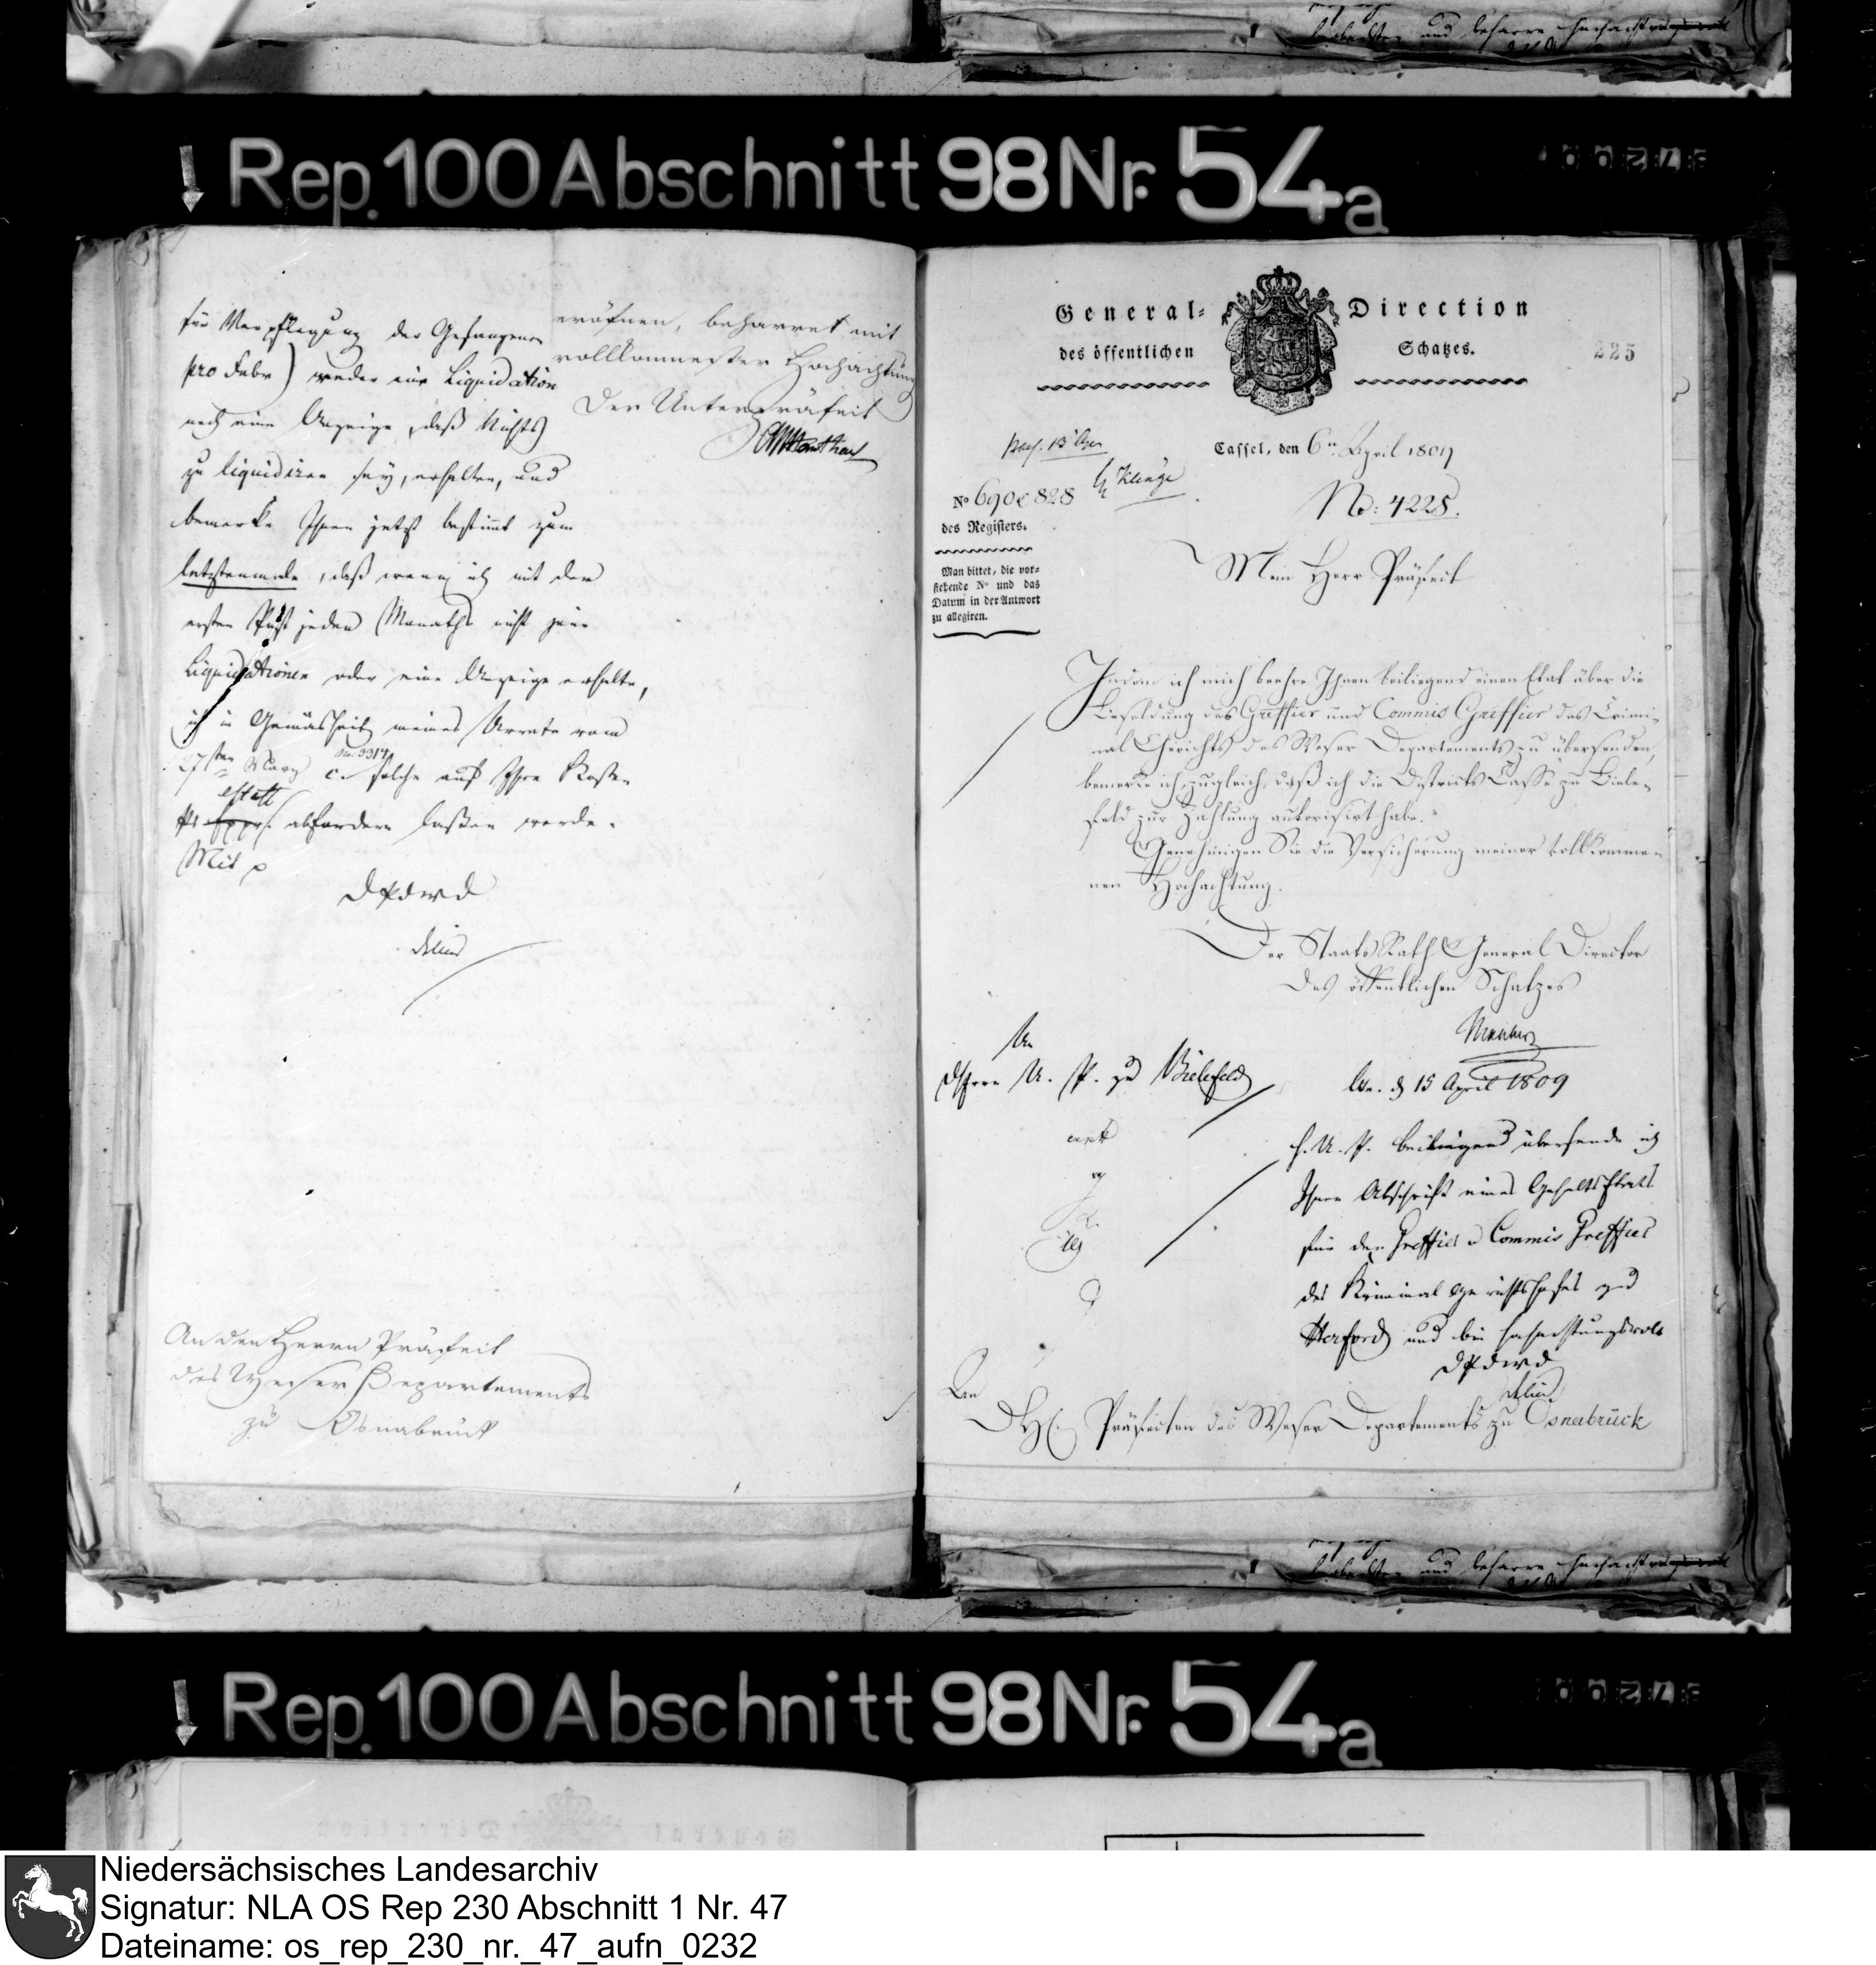 Rep. 100 Abschnitt 98 Nr. 54a
für Verpflegung der Gefangenen
pro Febr) weder eine Liquidation
noch eine Anzeige, daß Nichts
zu liquidiren sey, erhalten, und
bemerke Ihnen jetzt bestimmt zum
letztenmale, daß wenn ich mit der
ersten Post jeden Monaths nicht jene
Liquidationen oder eine Anzeige erhalte,
ich in Gemäsheit meines Arrete vom
27sten März c. No. 3314 solche auf Ihre Kosten
estaff
pr abfordern laßen werde.
Mit p
DPdWD
Delius
eröfnen, beharret mit
vollkommenster Hochachtung
Der Unterpräfeit
An den Herrn Präfeit
des Weser Departements
zu Osnabrück
General-Direction
des öffentlichen Schatzes.
225
Cassel, den 6n. April 1809
No: 4228.
Klinge
No 690 & 828
des Registers.
Man bittet, die vor-
stehende No und das
Datum in der Antwort
zu allegiren.
Mein Herr Präfeit
Indem ich mich beehre Ihnen beiliegend einen Etat über die
Besoldung des Greffier und Commis Greffier des Crimi-
nal Gerichts des Weser Departements zu übersenden,
bemerke ich zugleich, daß ich die Districts Casse zu Biele-
feld zur Zahlung autorisirt habe.
Genehmigen Sie die Versicherung meiner vollkomme-
nen Hochachtung.
Der StaatsRath General Director
des öffentlichen Schatzes
An
d Herrn U. P. zu Bielefeld
d 15 April 1809
H. U. P. beiliegend übersende ich
Ihnen Abschrift eines GehaltsEtats
für den Greffier u Commis Greffier
des Kriminal Gerichtshofes zu
Herford und bin hochachtungsvoll
DPdWD
Delius
An
DH. Präfecten des Weser Departements zu Osnabrück
Rep. 100 Abschnitt 98 Nr. 54a
Niedersächsisches Landesarchiv
Signatur: NLA OS Rep 230 Abschnitt 1 Nr. 47
Dateiname: os_rep_230_nr._47_aufn_0232